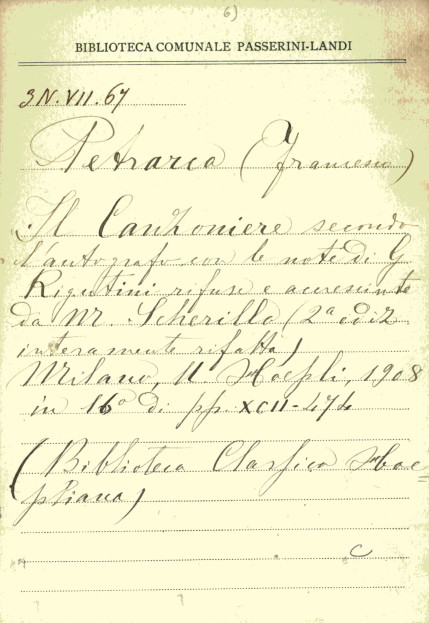 6)
BIBLIOTECA COMUNALE PASSERINI-LANDI
3N.VII.67
Petrarca (Francesco)
Il Canzoniere secondo
l'autografo con le note di G
Rigutini rifuse e accresciute
da M. Scherillo (2ª ediz
interamente rifatta)
Milano, U. Hoepli, 1908
in 16º di pp XCII-474
(Biblioteca Classica Hoe=
pliana)
C